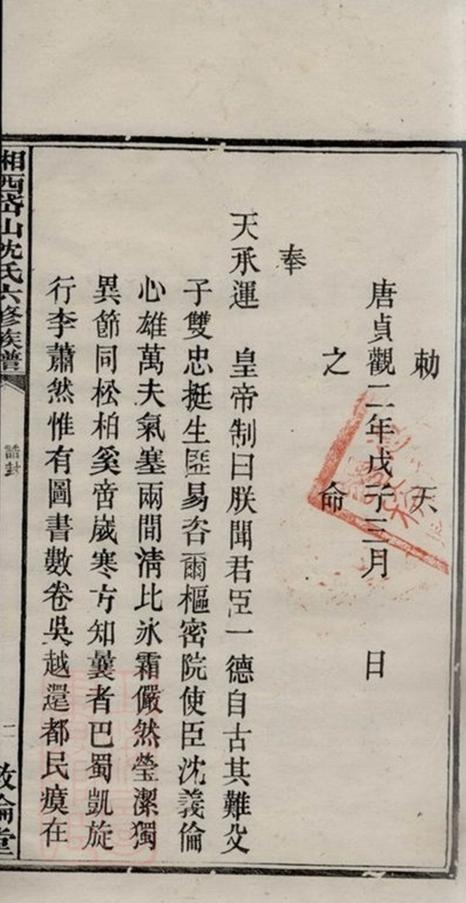 勅 天
唐貞觀二年戊子三月 日
之 命
奉
天承運 皇帝制曰朕聞君臣一德自古其難父
子雙忠挺生匪易咨爾樞密院使臣沈義倫
心雄萬夫氣塞兩間淸比氷霜儼然瑩潔獨
異節同松柏奚啻歲寒方知曩者巴蜀凱旋
行李蕭然惟有圖書數卷吳越還都民瘼在
湘西岱山沈氏六修族譜 誥封 二 敦倫堂